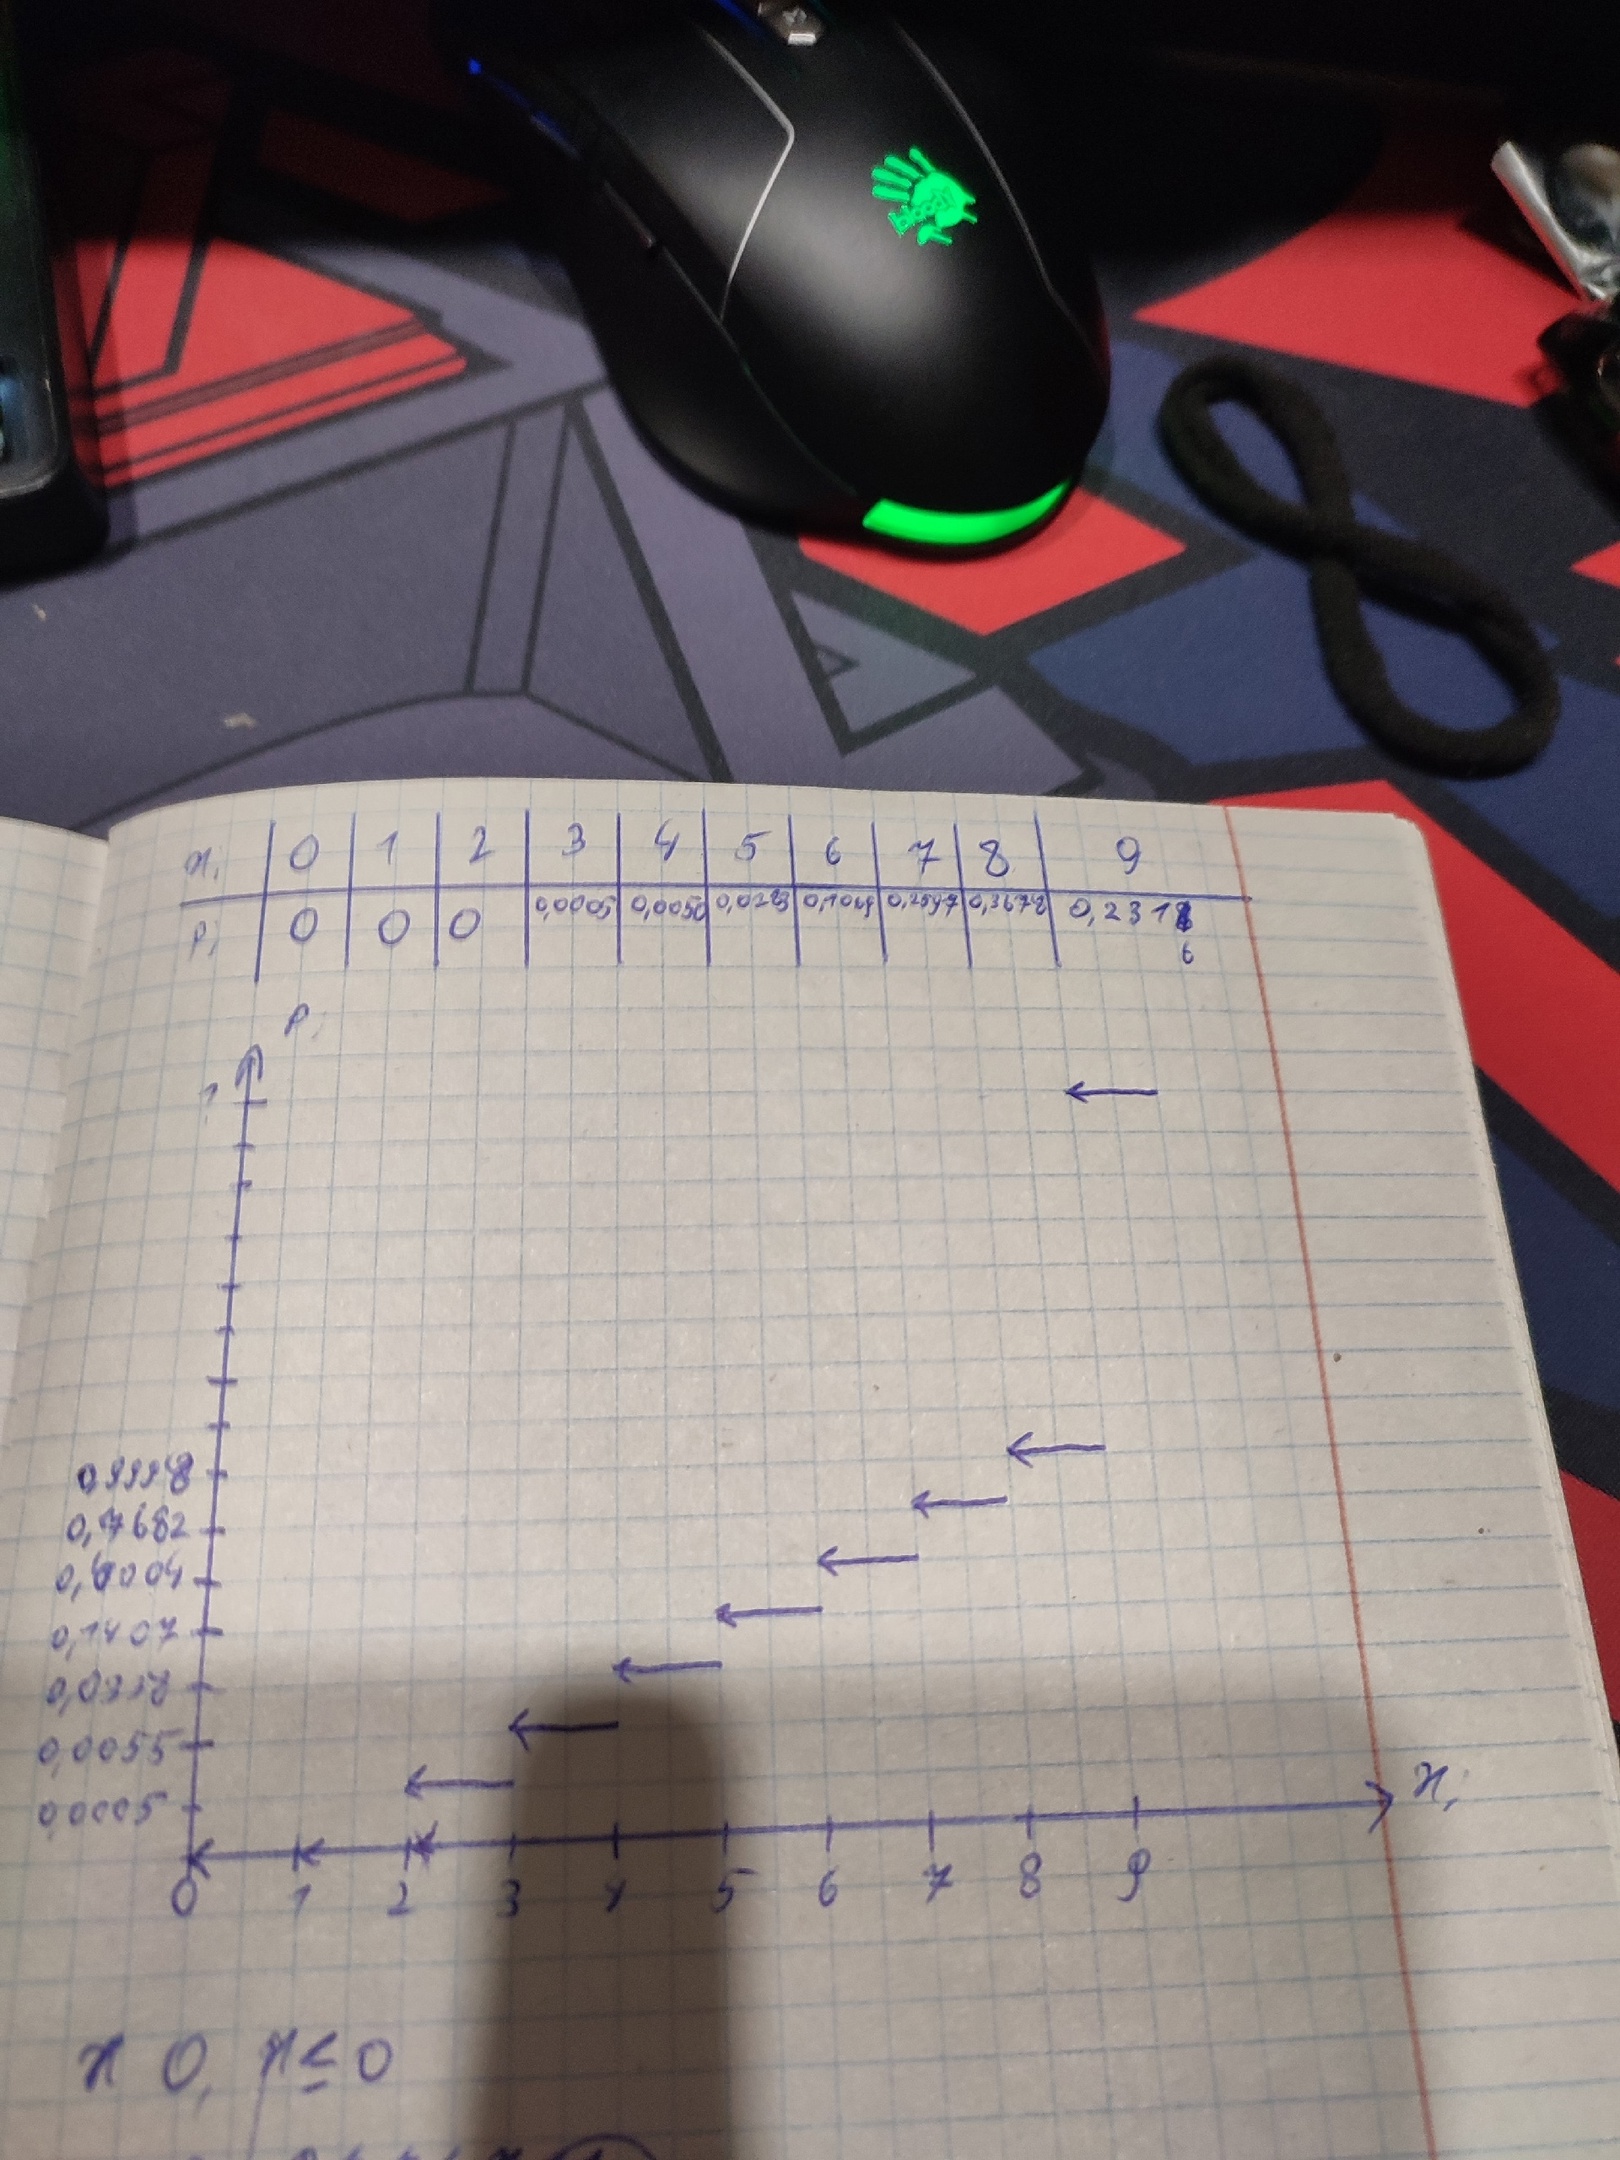 bloody
xi 0 1 2 3 4 5 6 7 8 9
pi 0 0 0 0,0005 0,0050 0,0283 0,1069 0,2597 0,3678 0,231
6
Pi
1
0,9998
0,7682
0,4004
0,1407
0,0338
0,0055
0,0005
xi
0 1 2 3 4 5 6 7 8 9
x 0, x ≤ 0